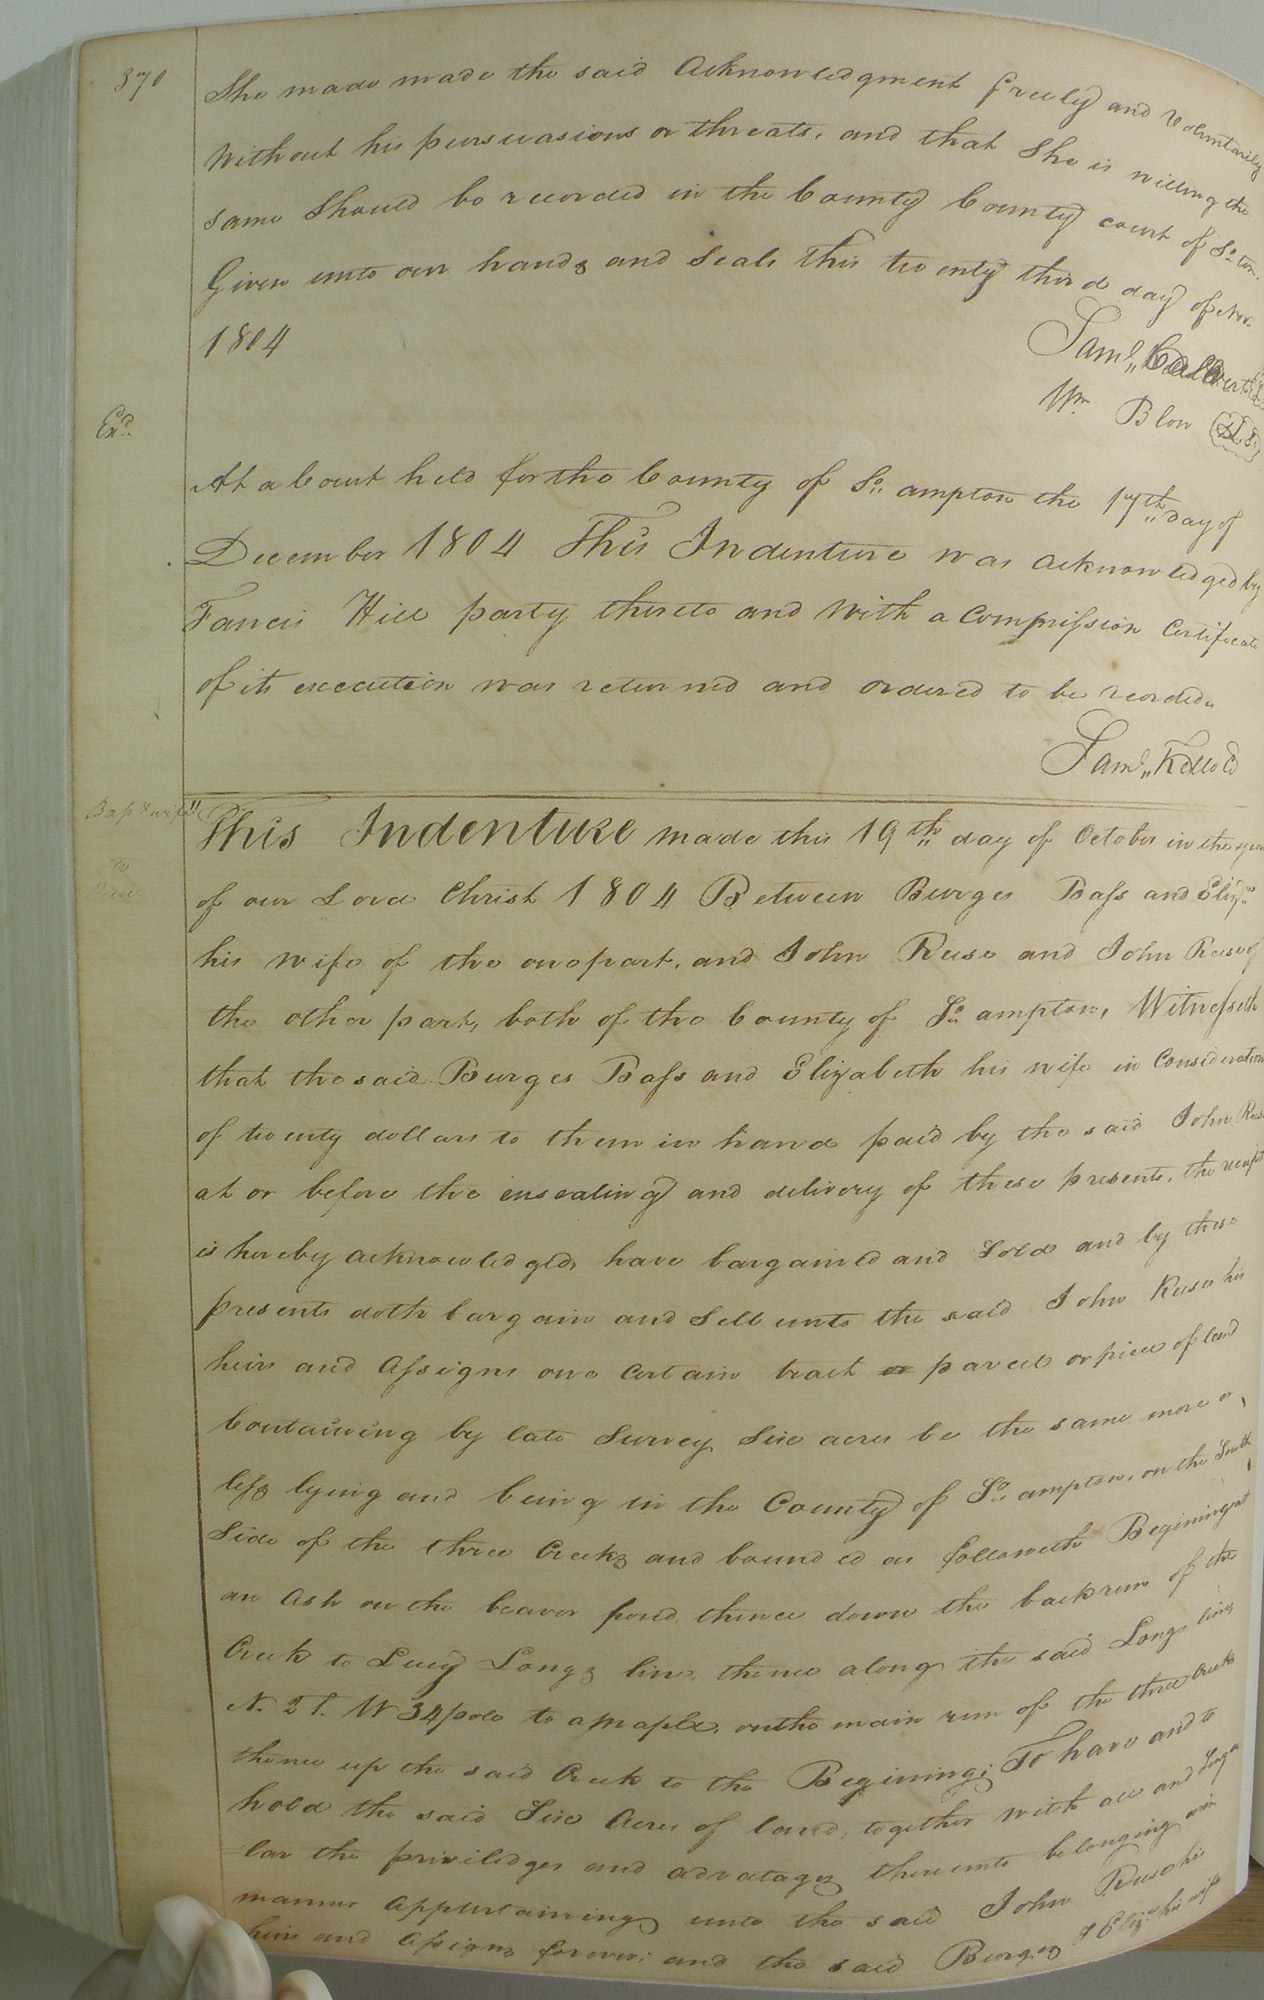 370
She made made the said Acknowledgment freely and Voluntarily
Without his perswasions or threats, and that She is willing the
same Should be recorded in the County County court of So. ton.
Given unto our hands and Seals this twenty third day of Nov.
1804
Saml. Calvert
Wm Blow L.S.
Exd.
At a Court held for the County of So. ampton the 17th day of
December 1804 This Indenture was acknowledged by
Fancis Hill party thereto and with a Commission Certificate
of its execution was returned and ordered to be recorded.
Saml. Kello CC
Bass & wife
to
This Indenture made this 19th day of October in the year
of our Lord Christ 1804 Between Burges Bass and Eliza.
his wife of the one part, and John Reese and John Reese of
the other part, both of the County of So. ampton, Witnesseth
that the said Burges Bass and Elizabeth his wife in Consideration
of twenty dollars to them in hand paid by the said John Reese
at or before the ensealing and delivery of these presents, the receipt
is hereby acknowledged, have bargained and Sold and by these
presents doth bargain and Sell unto the said John Reese his
heirs and Assigns one Certain tract or parcel or piece of land
Containing by late Survey Six acres be the same more or
less lying and being in the County of So. ampton, on the South
Side of the three Creeks and bounded as followeth Begining at
an Ash on the beaver pond thence down the back run of the
Creek to Lucy Longs line, thence along the said Longs line
N. 21. W 34 pole to a maple, on the main run of the three Creeks
thence up the said Creek to the Begining; To have and to
hold the said Six Acres of land, together with all and Singu
lar the priviledges and advatages thereunto belonging or in
manner Appertaining unto the said John Reese his
heirs and Assigns forever; and the said Burges & Eliza. his wife